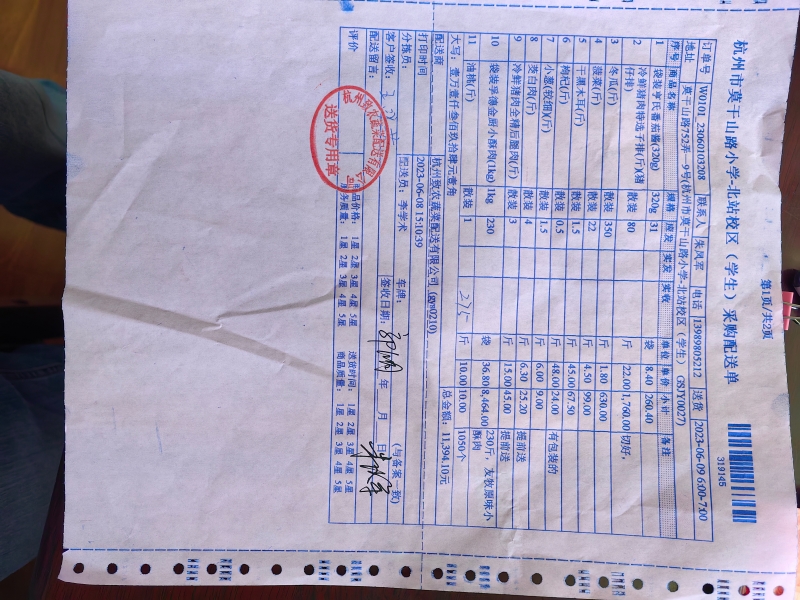 第1页/共2页
杭州市莫干山路小学-北站校区（学生）采购配送单
319145
订单号 W0101_23060103208 联系人 朱凤军 电话 13989805212 送货 2023-06-09 6:00-7:00
地址 莫干山路752弄一9号(杭州市莫干山路小学-北站校区（学生）GSJY0027)
序号 商品名称 规格 应发 实发 实收 单位 单价 小计 备注
1 袋装亨氏番茄酱(320g) 320g 31 袋 8.40 260.40
2 冷鲜猪肉特选子排(斤)(猪仔排) 散装 80 斤 22.00 1,760.00 切好,
3 冬瓜(斤) 散装 350 斤 1.80 630.00
4 菠菜(斤) 散装 22 斤 4.50 99.00
5 干黑木耳(斤) 散装 1.5 斤 45.00 67.50
6 枸杞(斤) 散装 0.5 斤 48.00 24.00 有包装的
7 小葱(较细)(斤) 散装 1.5 斤 6.00 9.00
8 茭白肉(斤) 散装 4 斤 6.30 25.20 提前送
9 冷鲜猪肉全精后腿肉(斤) 散装 3 斤 15.00 45.00 提前送
10 袋装孚德金厨小酥肉(1kg) 1kg 230 袋 36.80 8,464.00 230斤, 友牧原味小酥肉
11 油桃(斤) 散装 1 斤 10.00 10.00 1050个
大写: 壹万壹仟叁佰玖拾肆元壹角 总金额: 11,394.10元
配送商 杭州致农蔬菜配送有限公司 (gys0210)
打印时间 2023-06-08 15:10:39
分拣员: 配送员: 李学术 车牌: (与备案一致)
客户签收: 签收日期: 年 月 日
配送留言:
评价 商品价格: 1星 2星 3星 4星 5星 送货时间: 1星 2星 3星 4星 5星
服务质量: 1星 2星 3星 4星 5星 商品质量: 1星 2星 3星 4星 5星
杭州致农蔬菜配送有限公司
送货专用章